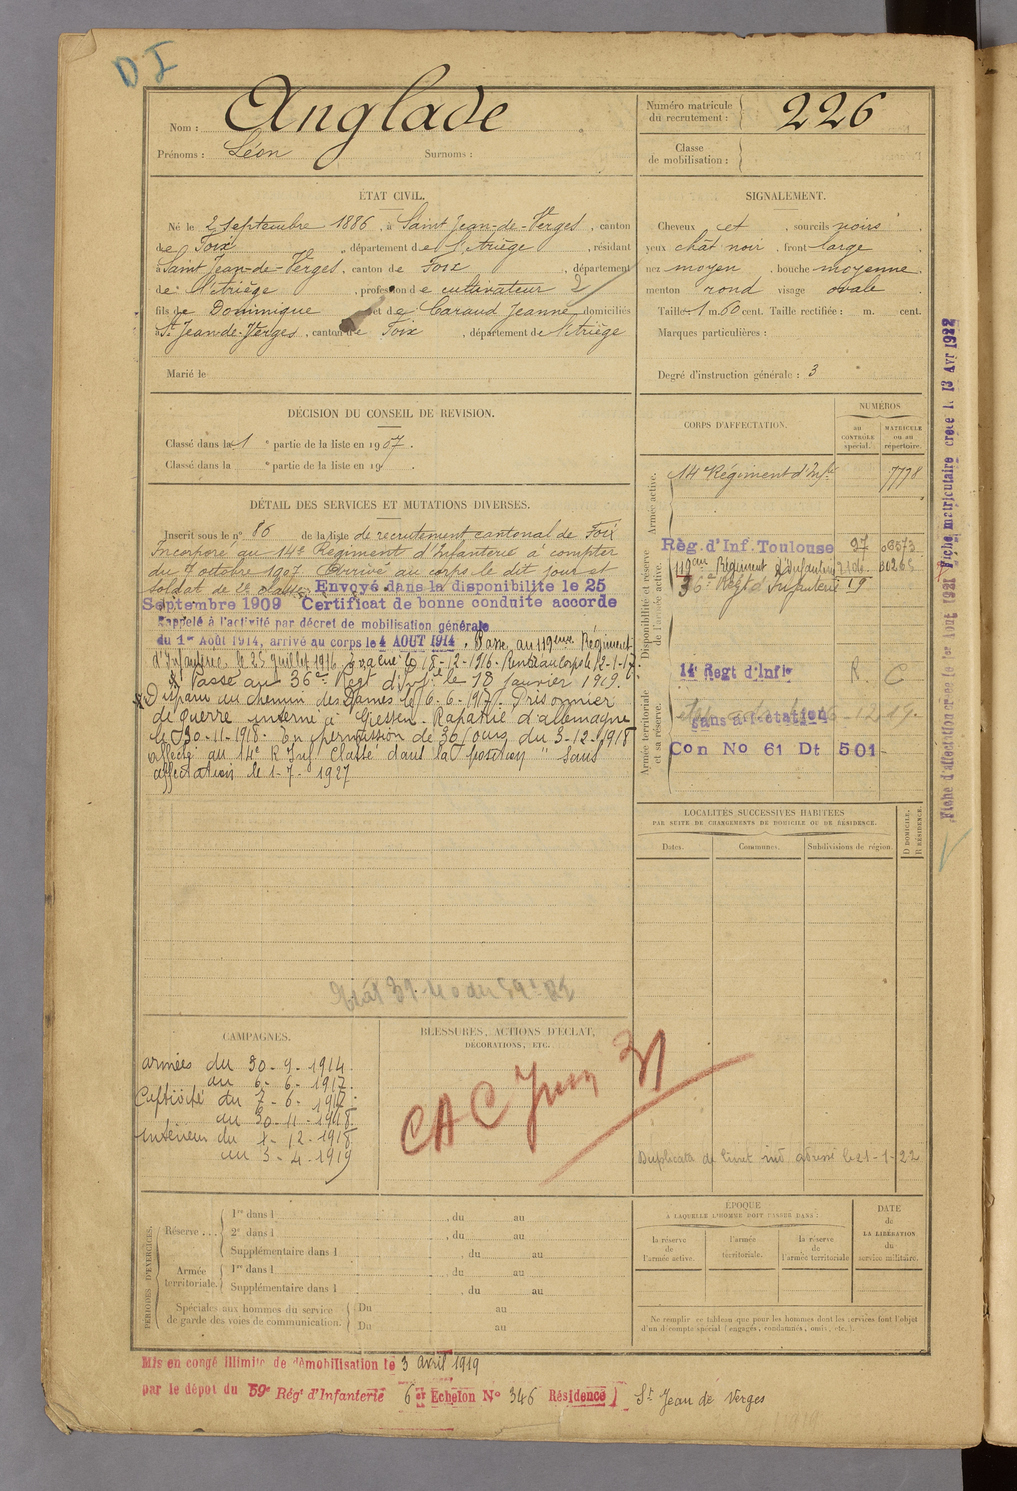 D I
Nom : Anglade
Prénoms : Léon Surnoms :
Numéro matricule
du recrutement : 226
Classe
de mobilisation :
ÉTAT CIVIL.
Né le 2 septembre 1886, à Saint Jean-de-Verges, canton
de Foix, département de l'Ariège, résidant
à Saint Jean-de-Verges, canton de Foix, département
de l'Ariège, profession de cultivateur 2
fils de Dominique et de Caraud Jeanne domiciliés
à St Jean-de-Verges, canton de Foix, département de l'Ariège
Marié le
SIGNALEMENT.
Cheveux et, sourcils noirs,
yeux chât noir, front large
nez moyen, bouche moyenne,
menton rond visage ovale
Taille : 1 m. 60 cent. Taille rectifiée : m. cent.
Marques particulières :
Degré d'instruction générale : 3
DÉCISION DU CONSEIL DE REVISION.
Classé dans la 1e partie de la liste en 1907.
Classé dans la e partie de la liste en 19 .
DÉTAIL DES SERVICES ET MUTATIONS DIVERSES.
Inscrit sous le n° 86 de la liste de recrutement cantonal de Foix
Incorporé au 14e Régiment d'Infanterie à compter
du 7 octobre 1907 Arrivé au corps le dit jour et
soldat de 2e classe. Envoyé dans la disponibilité le 25
Septembre 1909 Certificat de bonne conduite accordé
Rappelé à l'activité par décret de mobilisation générale
du 1er Août 1914, arrivé au corps le 4 AOUT 1914. Passé au 119ème Régiment
d'Infanterie le 25 juillet 1916. Evacué le 18-12-1916. Rentré au corps le 12-1-17.
Passé au 36e Regt d'Inf. le 18 Janvier 1919.
Disparu au chemin des Dames le 6-6-1917. Prisonnier
de guerre interné à Giessen. Rapatrié d'allemagne
le 30-11-1918. En permission de 30 jours du 3-12-1918
affecté au 14e R Inf Classé dans la position "Sans
affectation le 1-7-1927
CORPS D'AFFECTATION.
NUMÉROS
au
CONTRÔLE
spécial.
MATRICULE
ou au
répertoire.
Armée active.
14e Régiment d'Infie 7778
Disponibilité et réserve
de l'armée active.
Règ. d'Inf. Toulouse 97 06573
119eme Régiment d'Infanterie
36e Regt d'Infanterie 19
Armée territoriale
et sa réserve.
14 Regt d'Infie R. C
sans affectation
Con No 61 Dt 501
Fiche d'affectation créée le 1er Août 1921 Fiche matriculaire créée le 13 Avr 1922
LOCALITÉS SUCCESSIVES HABITÉES
PAR SUITE DE CHANGEMENTS DE DOMICILE OU DE RÉSIDENCE.
Dates. Communes. Subdivisions de région.
D DOMICILE.
R RÉSIDENCE.
CAMPAGNES.
armées du 30-9-1914.
au 6-6-1917.
Captivité du 7-6-1917.
au 30-11-1918.
intérieur du 1-12-1918
au 3-4-1919
BLESSURES, ACTIONS D'ÉCLAT,
DÉCORATIONS, ETC.
CAC Juin 31
Duplicata de livret ind adressé le 21-1-22
PÉRIODES D'EXERCICES.
Réserve ... 1re dans l , du au
2e dans l , du au
Supplémentaire dans l , du au
Armée
territoriale. 1re dans l , du au
Supplémentaire dans l , du au
Spéciales aux hommes du service
de garde des voies de communication. Du au
Du au
ÉPOQUE
A LAQUELLE L'HOMME DOIT PASSER DANS :
la réserve
de
l'armée active.
l'armée
territoriale.
la réserve
de
l'armée territoriale
DATE
de
LA LIBÉRATION
du
service militaire.
Ne remplir ce tableau que pour les hommes dont les services font l'objet
d'un décompte spécial (engagés, condamnés, omis, etc.).
Mis en congé illimité de démobilisation le 3 avril 1919
par le dépot du 59e Régt d'Infanterie 6e Echelon N° 346 Résidence St Jean de Verges